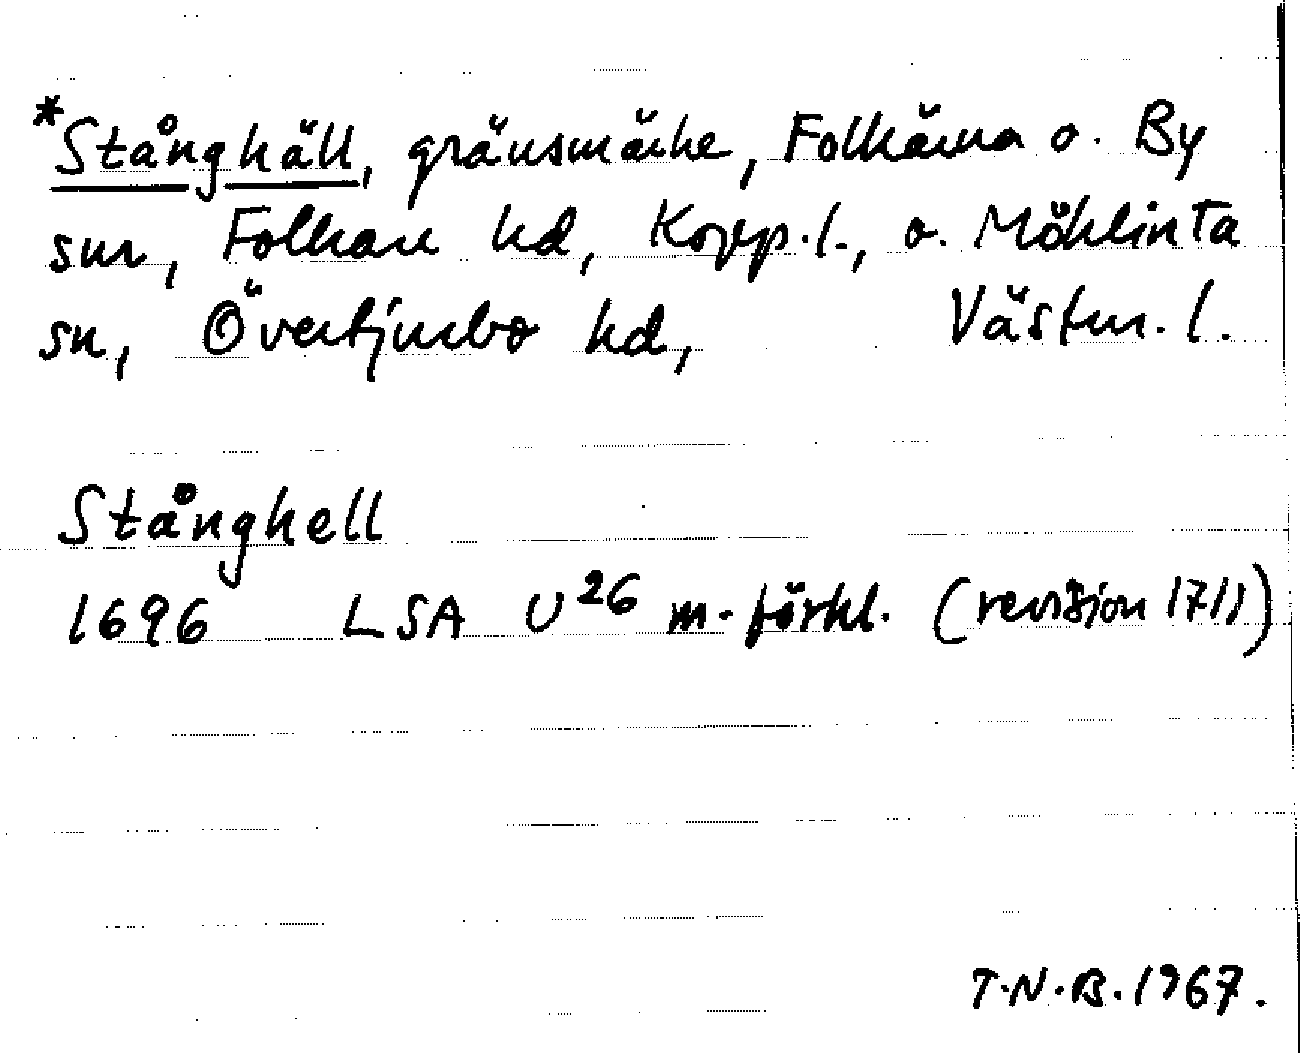 *Stånghäll, gränsmärke, Folkärna o. By
snr, Folkare hd, Kopp.l., o. Möklinta
sn, Övertjurbo hd, Västm. l.
Stånghell
1696 LSA U26 m. förkl. (revision 1711)
T.N.B. 1967.